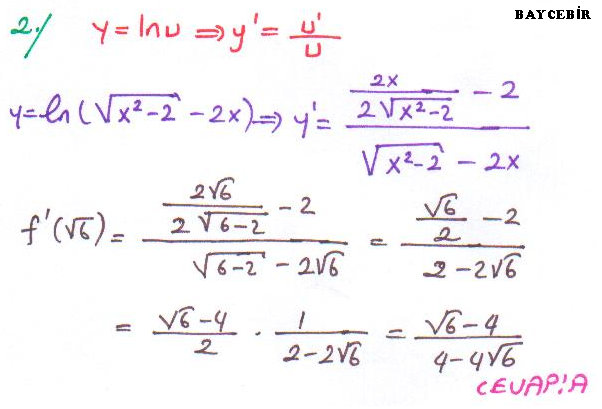 BAYCEBİR
2./ y = lnu ⇒ y' = u'/u
y = ln(√(x²-2) - 2x) ⇒ y' = (2x/(2√(x²-2)) - 2)/(√(x²-2) - 2x)
f'(√6) = (2√6/(2√(6-2)) - 2)/(√(6-2) - 2√6) = (√6/2 - 2)/(2 - 2√6)
= (√6-4)/2 · 1/(2-2√6) = (√6-4)/(4-4√6)
CEVAP:A